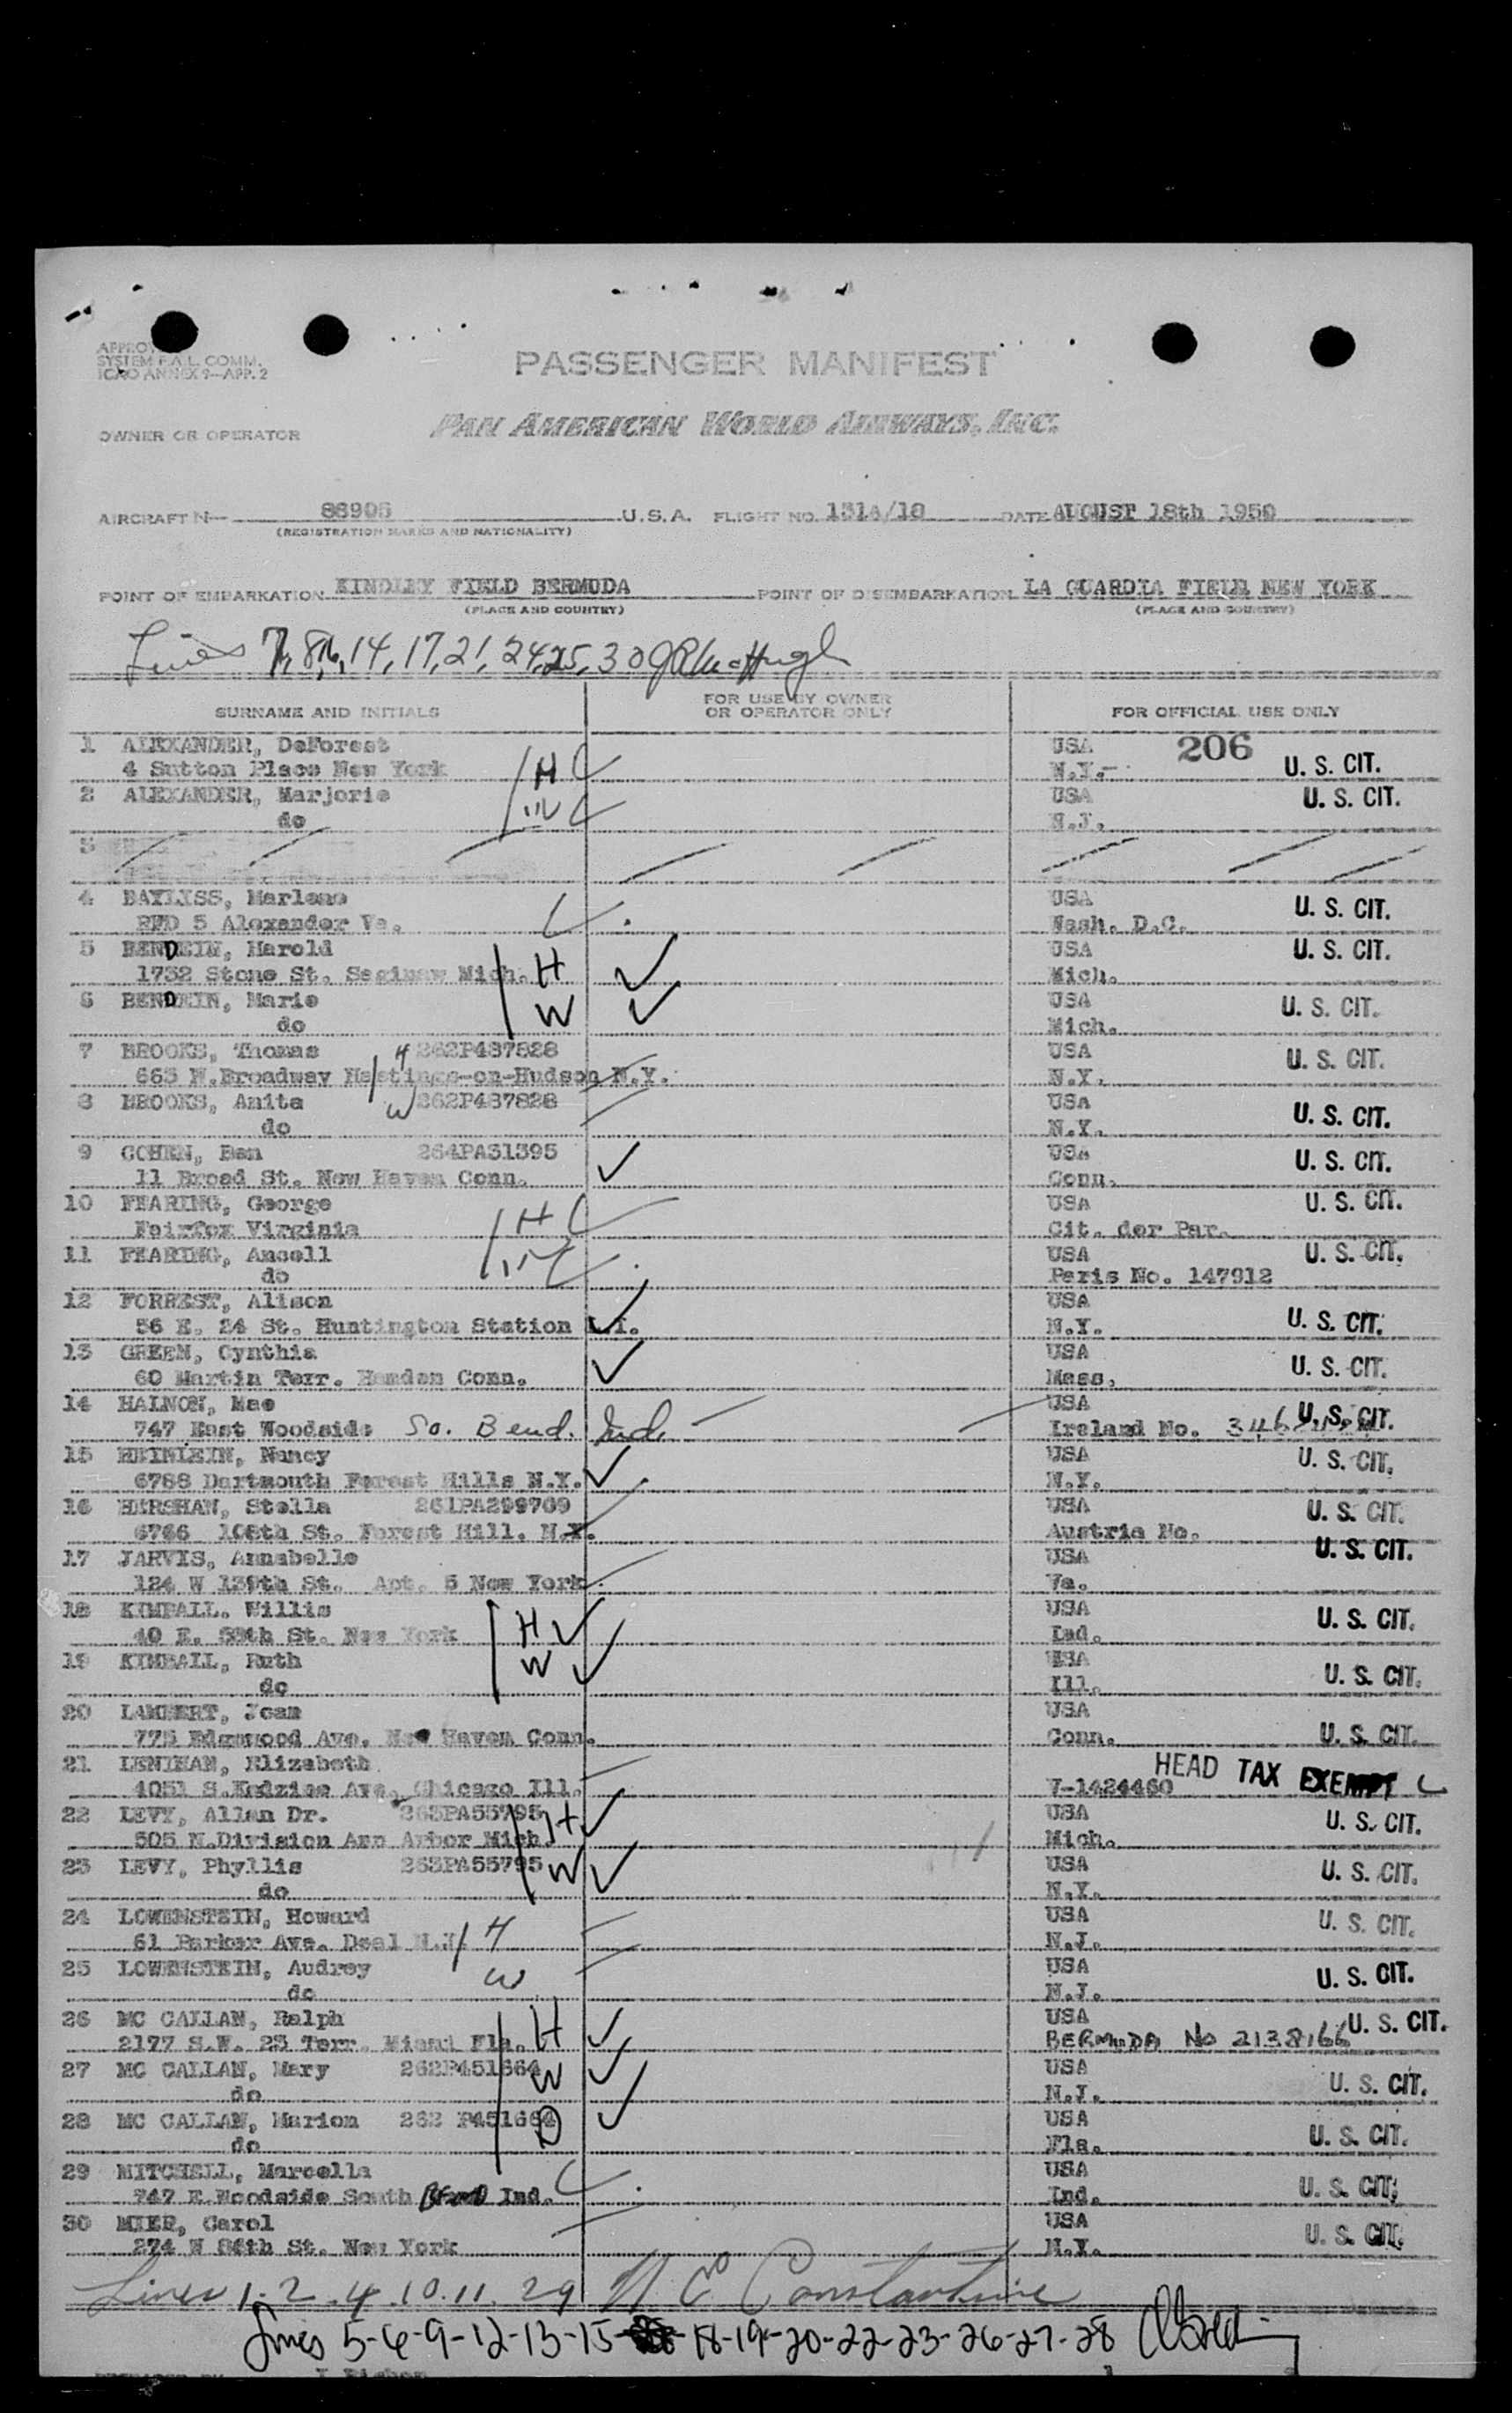 SYSTEM F.A.L. COMM.
ICAO ANNEX 9—APP. 2
PASSENGER MANIFEST
OWNER OR OPERATOR
PAN AMERICAN WORLD AIRWAYS, INC.
AIRCRAFT N— U.S.A. FLIGHT NO. 131A/18 DATE AUGUST 18th 1950
(REGISTRATION MARKS AND NATIONALITY)
POINT OF EMBARKATION KINDLEY FIELD BERMUDA POINT OF DISEMBARKATION LA GUARDIA FIELD NEW YORK
(PLACE AND COUNTRY) (PLACE AND COUNTRY)
Lines 7, 8, 16, 14, 17, 21, 24, 25, 30
SURNAME AND INITIALS FOR USE BY OWNER OR OPERATOR ONLY FOR OFFICIAL USE ONLY
1 ALEXANDER, DeForest USA 206
4 Sutton Place New York H N.Y. U. S. CIT.
2 ALEXANDER, Marjorie USA U. S. CIT.
do W N.J.
3
4 BAYLISS, Marlene USA U. S. CIT.
RFD 5 Alexander Va. Wash. D.C.
5 BENDEIN, Harold USA U. S. CIT.
1732 Stone St. Saginaw Mich. H Mich.
6 BENDEIN, Marie USA U. S. CIT.
do W Mich.
7 BROOKS, Thomas H 262P487828 USA U. S. CIT.
663 N.Broadway Hastings-on-Hudson N.Y. N.Y.
8 BROOKS, Anita W 262P487828 USA U. S. CIT.
do N.Y.
9 COHEN, Ben 264PA31395 USA U. S. CIT.
11 Broad St. New Haven Conn. Conn.
10 FEARING, George USA U. S. CIT.
Fairfax Virginia H Cit. der Par.
11 FEARING, Ansell USA U. S. CIT.
do W Paris No. 147912
12 FORREST, Alison USA
56 E. 24 St. Huntington Station L.I. N.Y. U. S. CIT.
13 GREEN, Cynthia USA U. S. CIT.
60 Martin Terr. Hamden Conn. Mass.
14 HAINON, Mae USA U. S. CIT.
747 East Woodside So. Bend. Ind. Ireland No.
15 HEINLEIN, Nancy USA U. S. CIT.
6788 Dartmouth Forest Hills N.Y. N.Y.
16 HERSHAN, Stella 261PA299709 USA U. S. CIT.
6766 108th St. Forest Hill. N.Y. Austria No.
17 JARVIS, Annabelle USA U. S. CIT.
124 W 139th St. Apt. 5 New York Va.
18 KIMBALL. Willis USA U. S. CIT.
40 E. 58th St. New York H Ind.
19 KIMBALL, Ruth W USA U. S. CIT.
do Ill.
20 LAMBERT, Joan USA
775 Edgewood Ave. New Haven Conn. Conn. U. S. CIT.
21 LENIHAN, Elizabeth HEAD TAX EXEMPT
4051 S.Kedzie Ave. Chicago Ill. V-1424460
22 LEVY, Allan Dr. 263PA55795 H USA U. S. CIT.
505 N.Division Ann Arbor Mich. Mich.
23 LEVY, Phyllis 263PA55795 W USA U. S. CIT.
do N.Y.
24 LOWENSTEIN, Howard USA U. S. CIT.
61 Parker Ave. Deal N.J. H N.J.
25 LOWENSTEIN, Audrey W USA U. S. CIT.
do N.J.
26 MC CALLAN, Ralph USA U. S. CIT.
2177 S.W. 23 Terr. Miami Fla. H BERMUDA No 2138166
27 MC CALLAN, Mary 262P451664 W USA U. S. CIT.
do N.J.
28 MC CALLAN, Marion 262 P451664 D USA U. S. CIT.
do Fla.
29 MITCHELL, Marcella USA U. S. CIT.
747 E.Woodside South Bend Ind. Ind.
30 MIER, Carol USA U. S. CIT.
274 W 84th St. New York N.Y.
Lines 1. 2. 4. 10. 11. 29 Constantine
Lines 5-6-9-12-13-15- 18-19-20-22-23-26-27-28